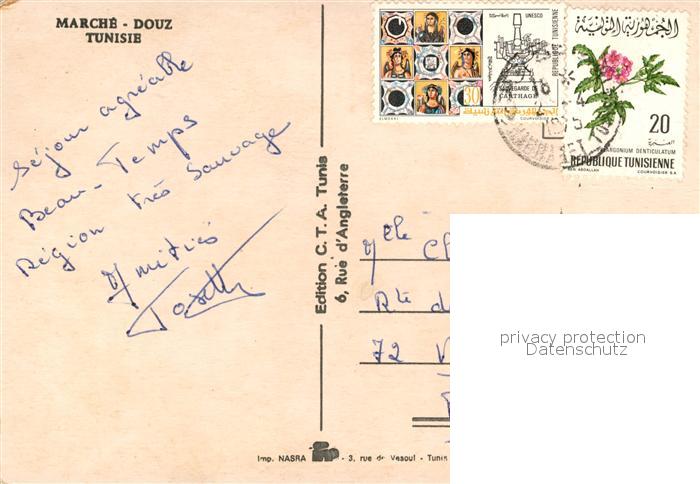 MARCHÉ - DOUZ
TUNISIE
Séjour agréable
Beau-Temps
Région très sauvage
Amitiés
Edition C. T. A. Tunis
6, Rue d'Angleterre
UNESCO
REPUBLIQUE TUNISIENNE
SAUVEGARDE DE
CARTHAGE
30
الجمهورية التونسية
ELMEKKI
COURVOISIER
الجمهورية التونسية
20
PELARGONIUM DENTICULATUM
REPUBLIQUE TUNISIENNE
BEN ABDALLAH
COURVOISIER S.A.
Mlle
Rte de
72
privacy protection
Datenschutz
Imp. NASRA - 3, rue de Vesoul - Tunis